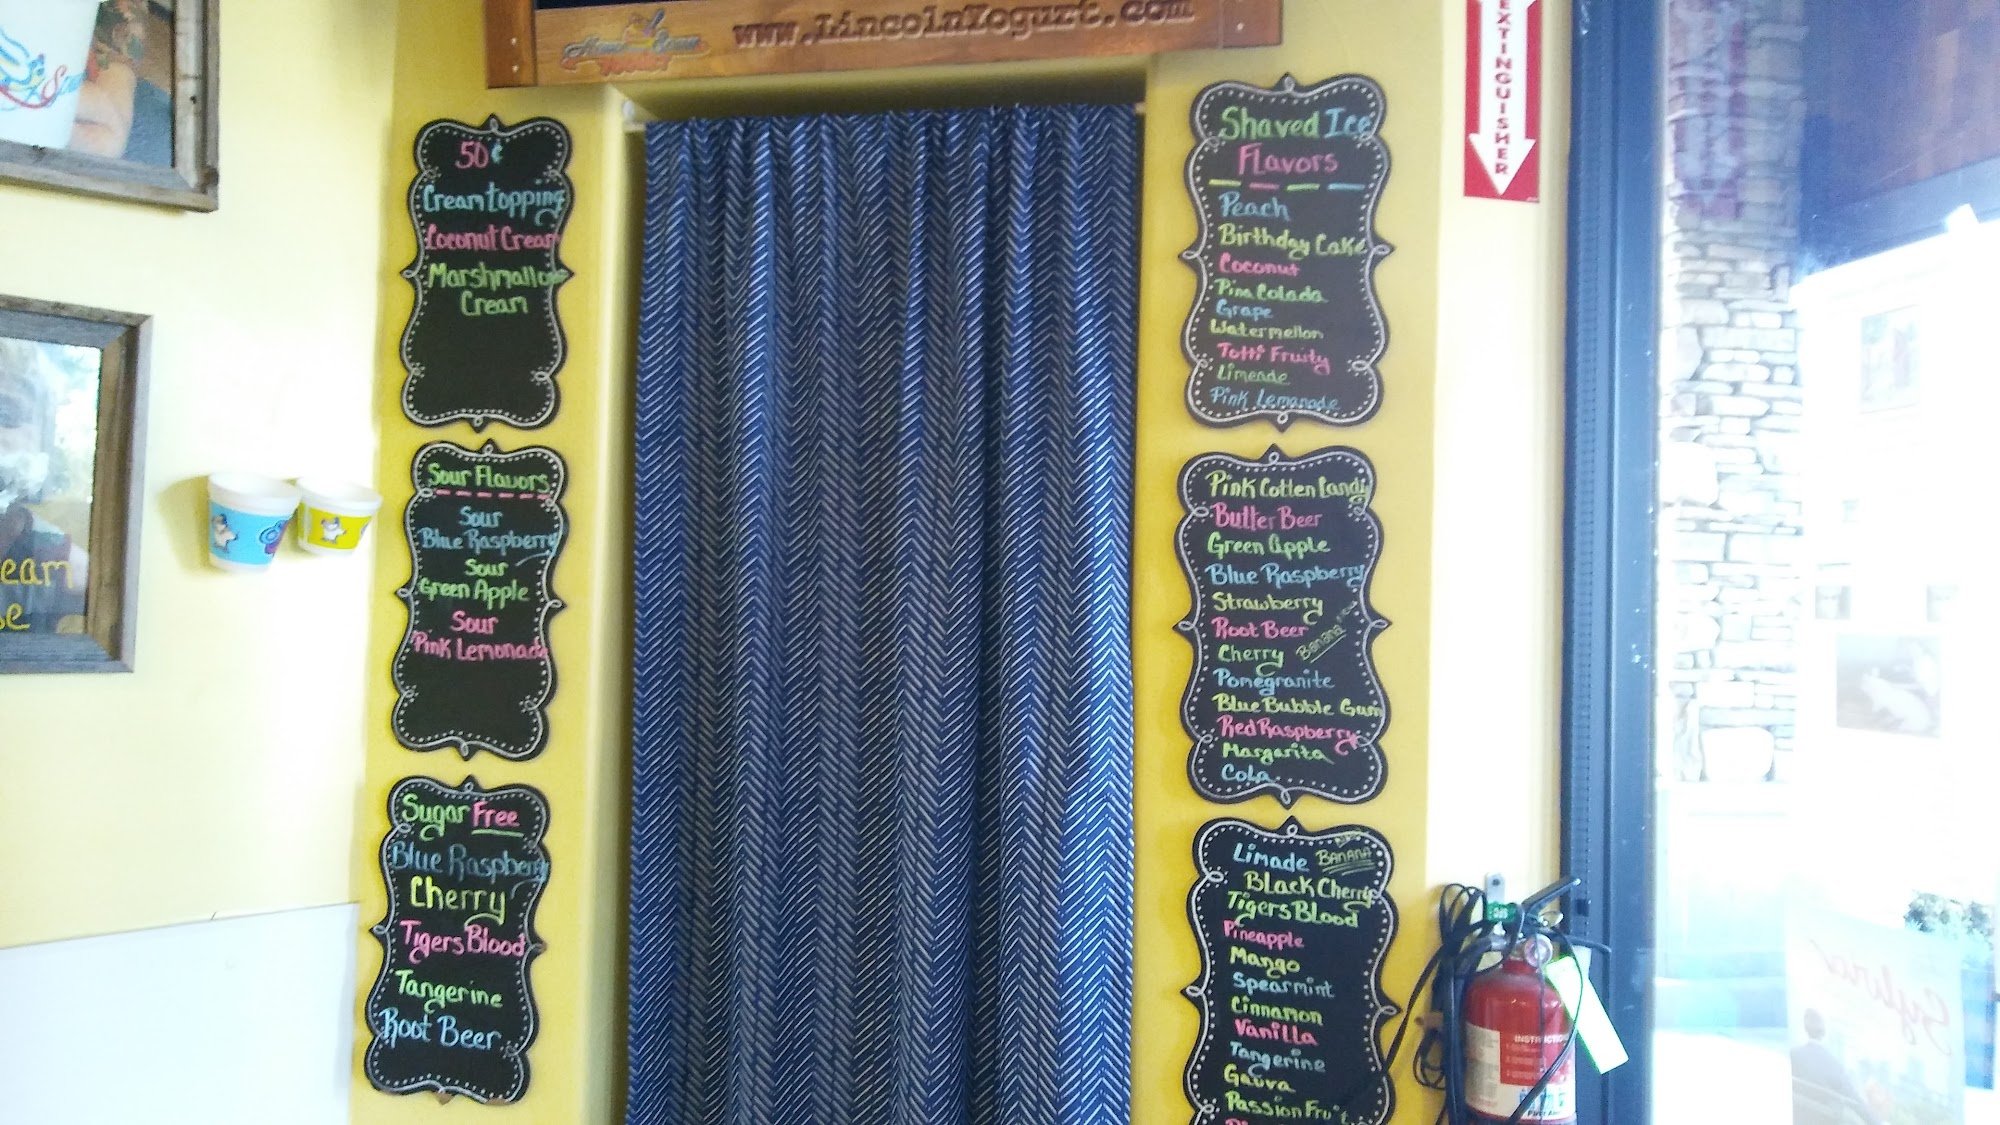 www.LincolnYogurt.com
EXTINGUISHER
50¢
Cream topping
Coconut Cream
Marshmallow
Cream
Sour Flavors
Sour
Blue Raspberry
Sour
Green Apple
Sour
Pink Lemonade
Sugar Free
Blue Raspberry
Cherry
Tigers Blood
Tangerine
Root Beer
Shaved Ice
Flavors
Peach
Birthday Cake
Coconut
Pina Colada
Grape
Watermellon
Totti Fruity
Limeade
Pink Lemonade
Pink Cotten Candy
Butter Beer
Green Apple
Blue Raspberry
Strawberry
Root Beer
Banana
Cherry
Pomegranite
Blue Bubble Gum
Red Raspberry
Margarita
Cola
Limade BANANA
Black Cherry
Tigers Blood
Pineapple
Mango
Spearmint
Cinnamon
Vanilla
Tangerine
Gauva
Passion Fruit
eam
INSTRUCTION